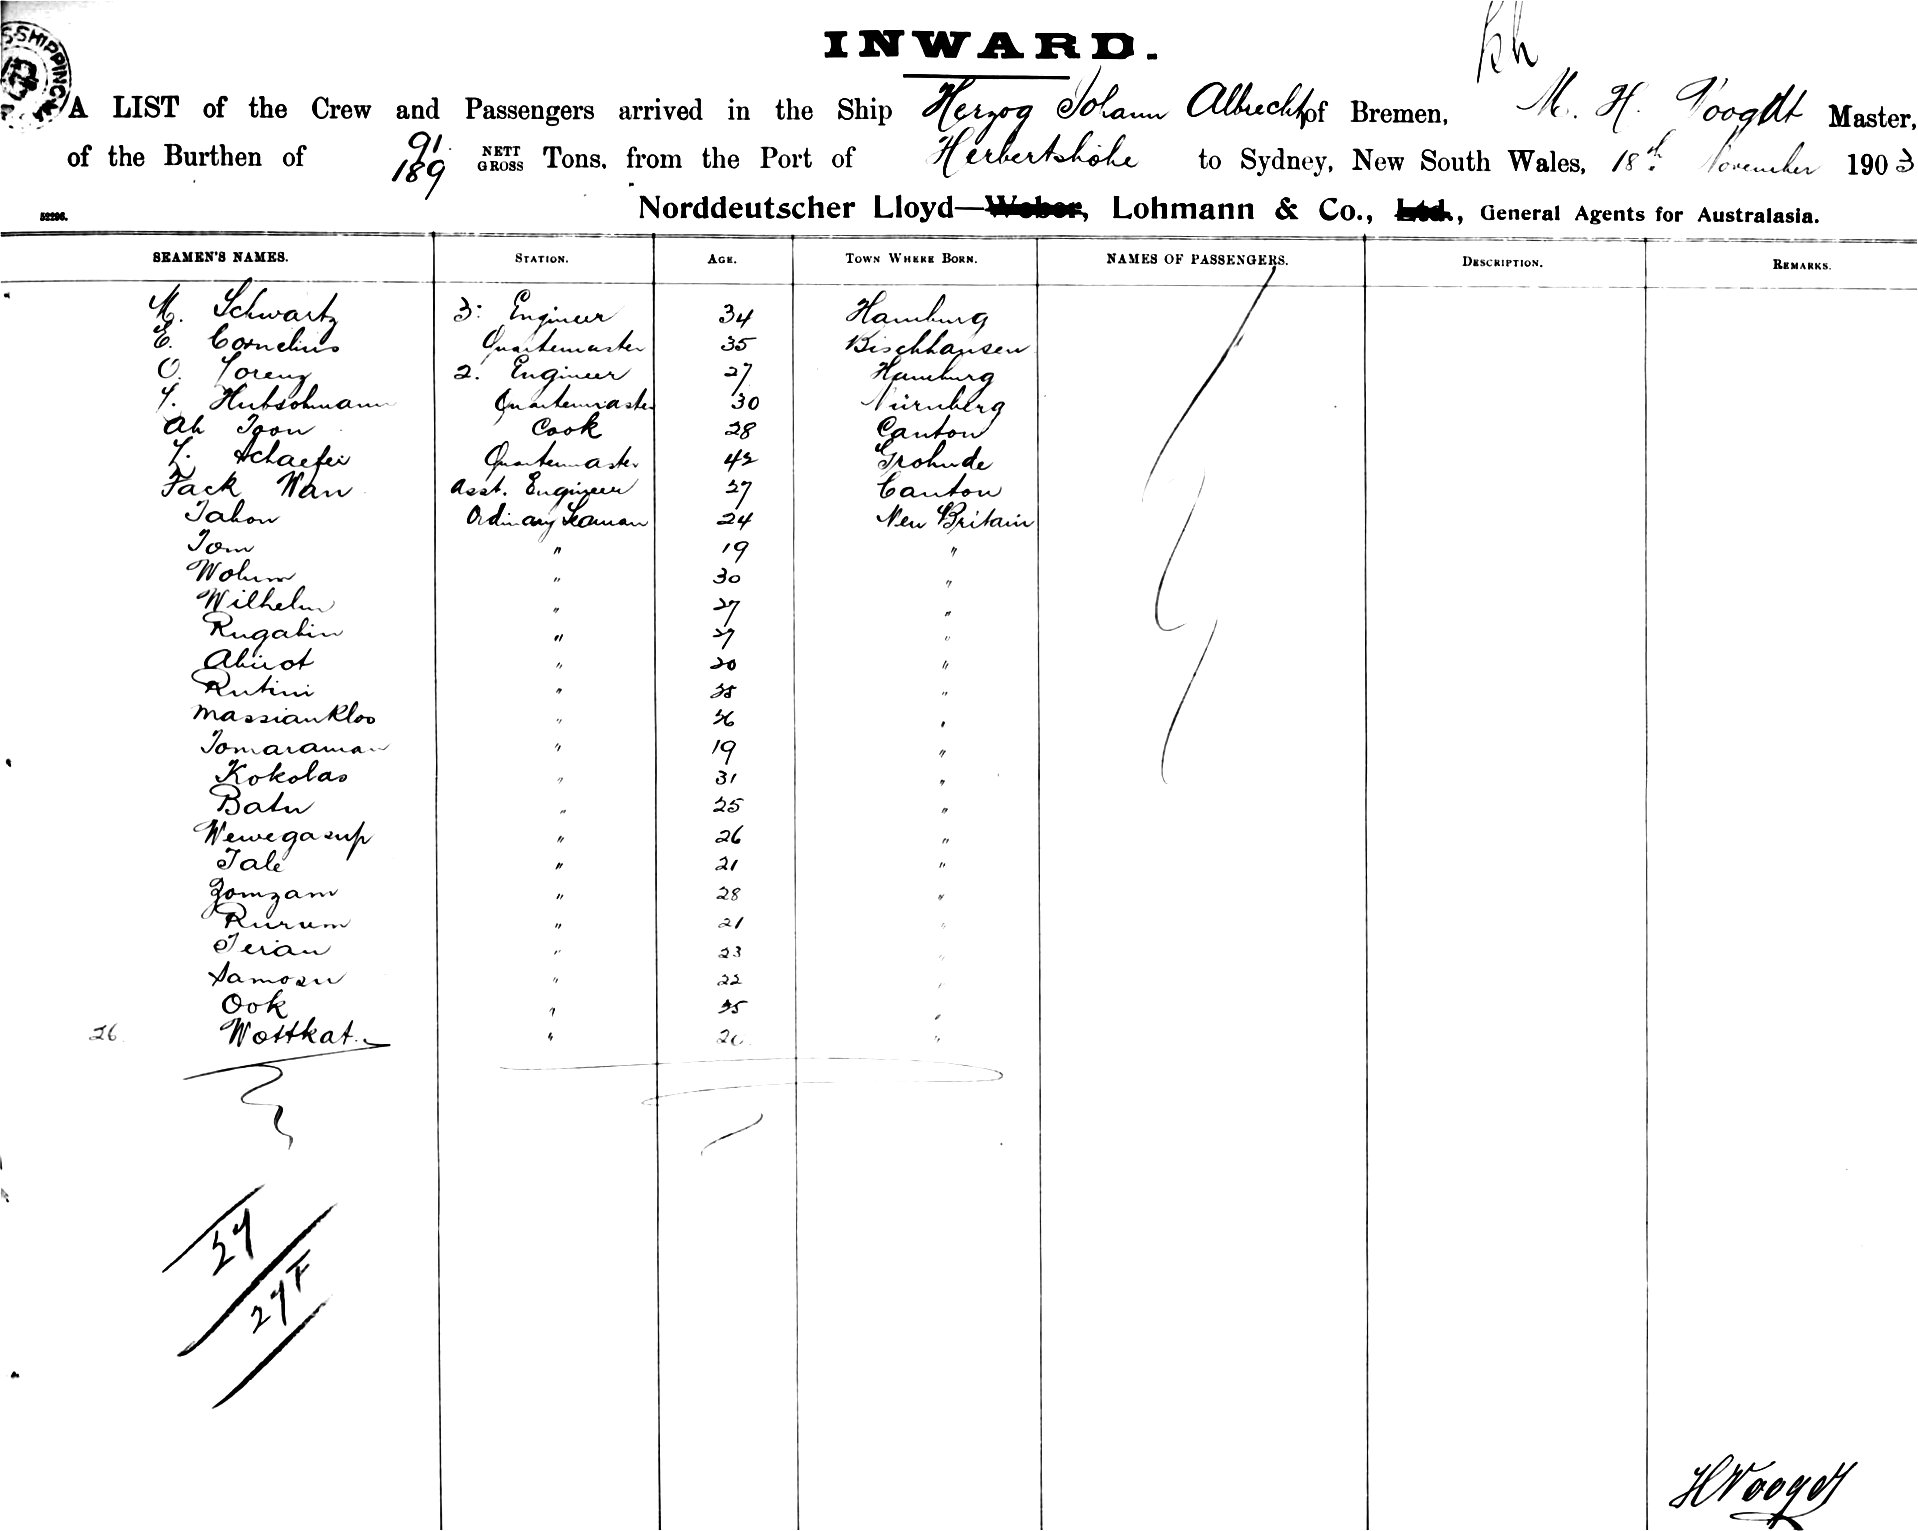 INWARD.
A LIST of the Crew and Passengers arrived in the Ship Herzog Johann Albrecht of Bremen, M. H. Voogdt Master,
of the Burthen of 91 NETT 189 GROSS Tons, from the Port of Herbertshöhe to Sydney, New South Wales, 18th November 1903
52296. Norddeutscher Lloyd—Weber, Lohmann & Co., Ltd., General Agents for Australasia.
SEAMEN'S NAMES. STATION. AGE. TOWN WHERE BORN. NAMES OF PASSENGERS. DESCRIPTION. REMARKS.
M. Schwartz 3: Engineer 34 Hamburg
E. Cornelius Quartemaster 35 Bischhausen
O. Lorenz 2. Engineer 27 Hamburg
Hubschmann Quartermaster 30 Nürnberg
Ah Toon Cook 28 Canton
Schaefer Quartemaster 42 Grohnde
Fack Wan Asst. Engineer 27 Canton
Tabon Ordinary Seaman 24 New Britain
Tom " 19 "
Wolum " 30 "
Wilhelm " 27 "
Rugabin " 27 "
Abirot " 20 "
Rutini " "
Massiankloo " "
Tomaraman " 19 "
Kokolas " 31 "
Batu " 25 "
Wewegasup " 26 "
Tale " 21 "
Zomzam " 28 "
Rurum " 21 "
Terian " 23 "
Samosu " 22 "
Ook " 35 "
26 Wottkat. " "
27
27F
HVoogdt